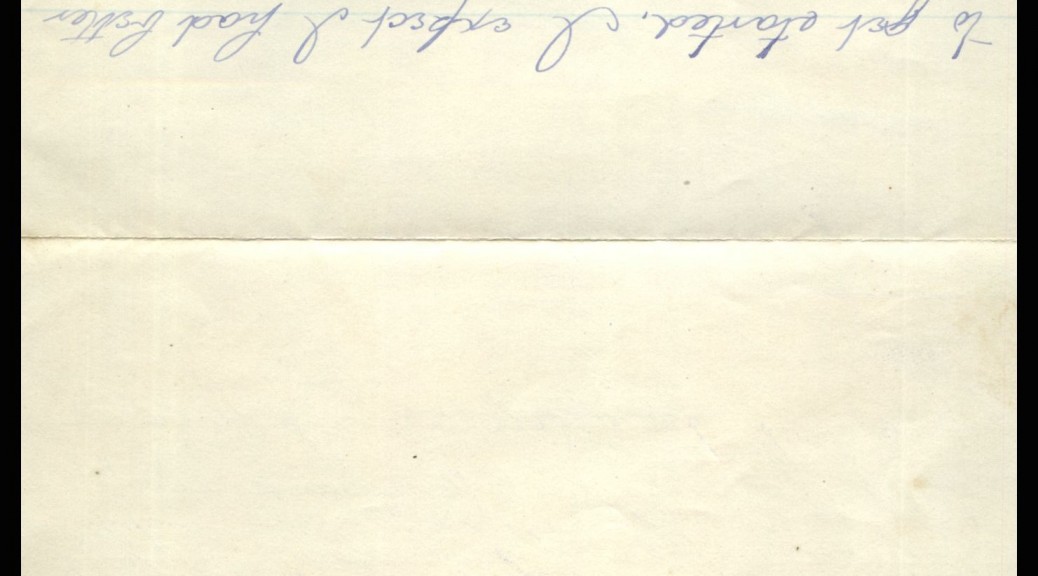 to get started, I expect I had better